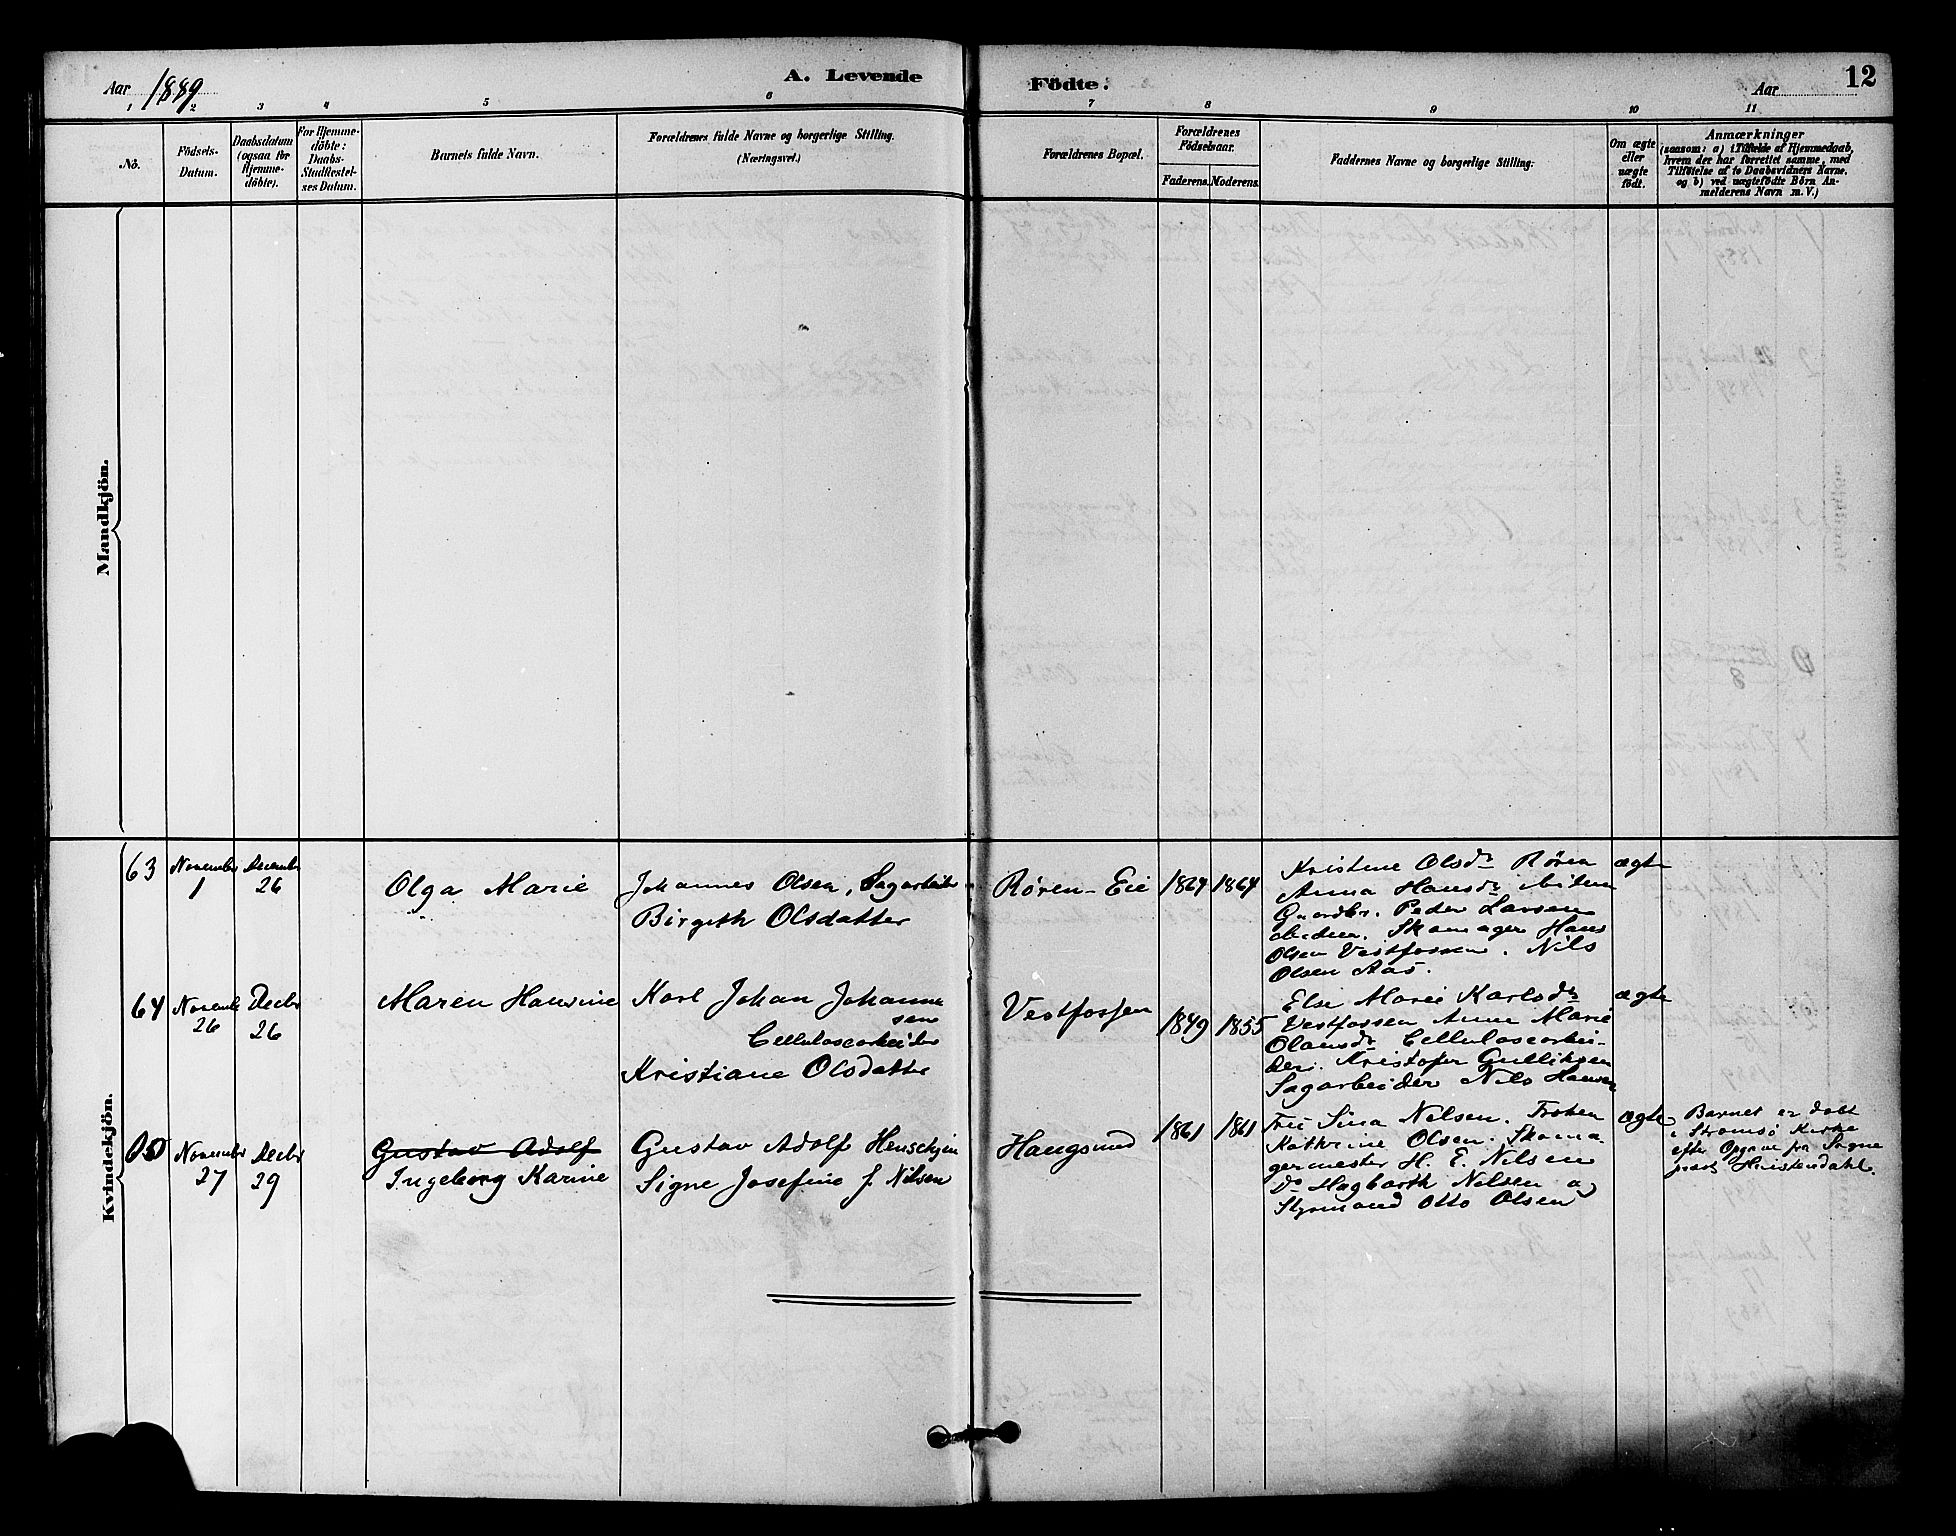 Aar 1889
A. Levende
Födte.
Aar
12
1 2 3 4 5 6 7 8 9 10 11
No.
Födsels-
Datum.
Daabsdatum
(ogsaa for
Hjemme-
döbte).
For Hjemme-
döbte:
Daabs-
Stadfæstel-
ses Datum.
Barnets fulde Navn.
Forældrenes fulde Navne og borgerlige Stilling.
(Næringsvei.)
Forældrenes Bopæl.
Forældrenes
Födselsaar.
Faderens. Moderens.
Faddernes Navne og borgerlige Stilling.
Om ægte
eller
uægte
födt.
Anmærkninger
(saasom: a) i Tilfælde af Hjemmedaab,
hvem der har forrettet samme, med
Tilföielse af to Daabsvidners Navne,
og b) ved uægtefödte Börn An-
melderens Navn m. V.)
Mandkjön.
Kvindekjön.
63
November
1
December
26
Olga Marie
Johannes Olsen, Sagarbeider
Birgith Olsdatter
Røren-Eie
1864 1864
Kristine Olsdr Røren
Anna Hansdr
Gaardbr. Peder Larsen
Skomager Hans
Olsen Vestfossen. Nils
Olsen Aas.
ægte
64
Novembr
26
Decbr
26
Maren Hansine
Karl Johan Johanne
sen
Cellulosearbeider
Kristiane Olsdatter
Vestfossen
1849 1855
Else Marie Karlsdr
Vestfossen Anne Marie
Olausdr Cellulosearbei-
der. Kristofer Gulliksen
Sagarbeider Nils Hansen
ægte
November
27
Decbr
29
Gustav Adolf
Ingeborg Karine
Gustav Adolf Henschien
Signe Josefine f. Nilsen
Haugsund
1861 1861
Frue Sina Nilsen. Frøken
Kathrine Olsen. Skoma-
germester H. E. Nilsen
Do Hagbarth Nilsen og
Styrmand Otto Olsen
ægte
Barnet er døbt
i Strømsø Kirke
efter Opgave fra Sogne
prest